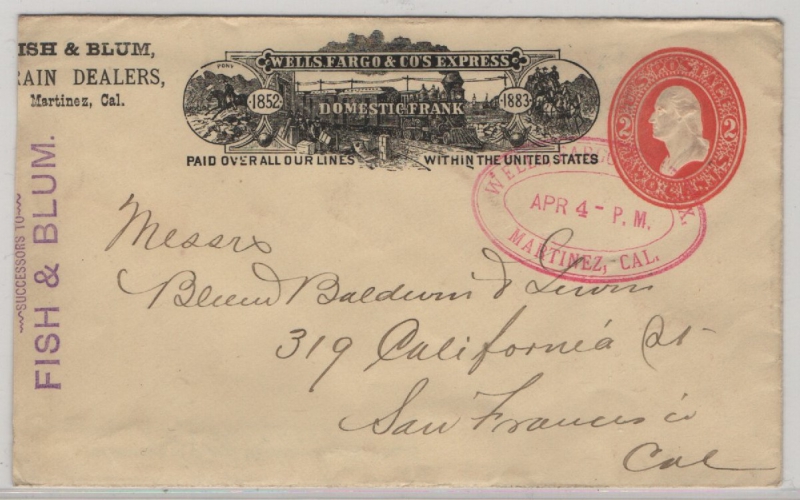 ISH & BLUM,
RAIN DEALERS,
Martinez, Cal.
SUCCESSORS TO
FISH & BLUM.
WELLS, FARGO & CO'S EXPRESS
PONY
1852
DOMESTIC FRANK
1883
PAID OVER ALL OUR LINES WITHIN THE UNITED STATES
2 2
WELLS FARGO X.
APR 4 - P. M.
MARTINEZ, CAL.
Messrs
Blum Baldwin & Girvin
319 California St
San Francisco
Cal